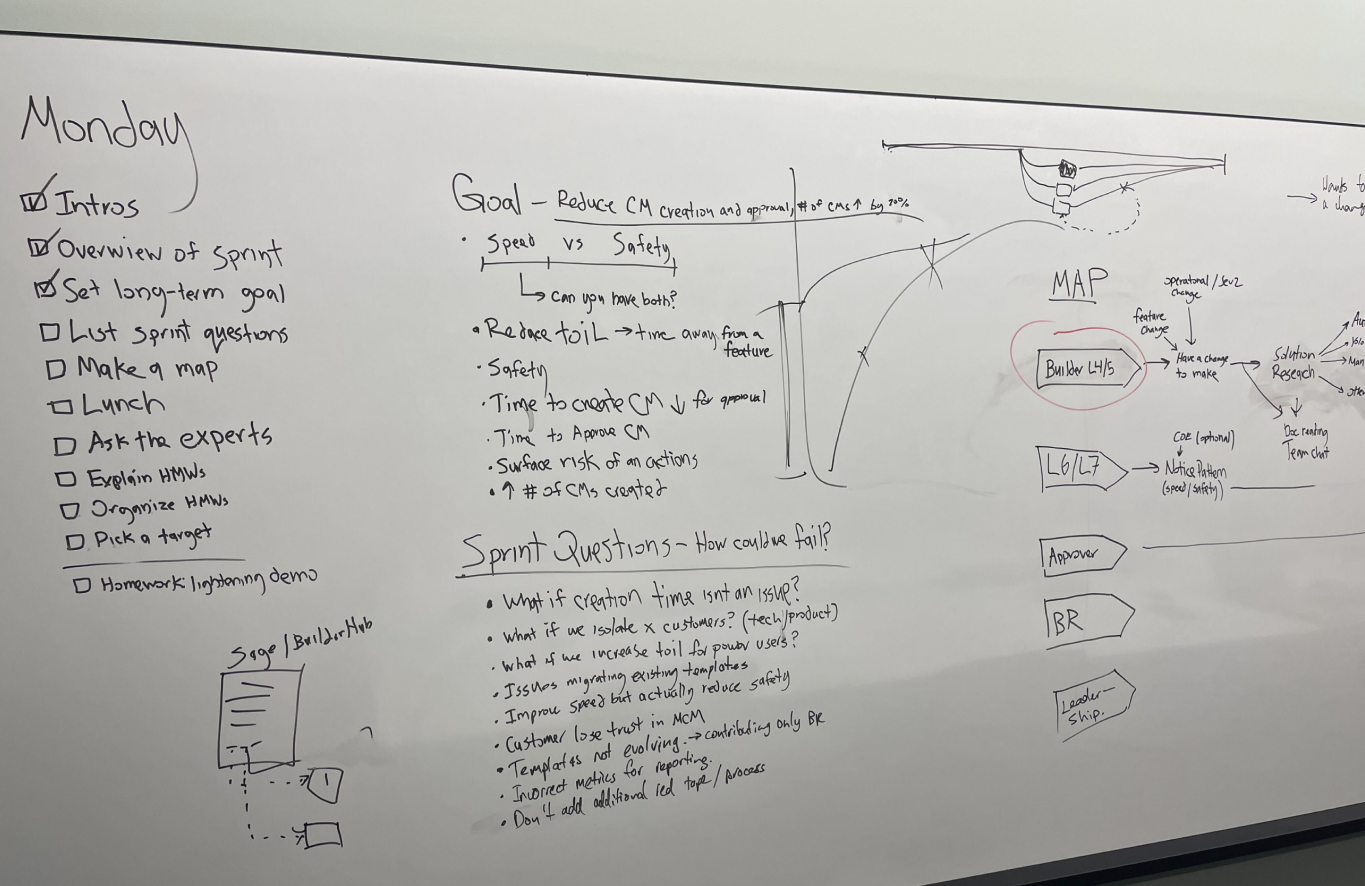 Monday
Intros
Overview of Sprint
Set long-term goal
List sprint questions
Make a map
Lunch
Ask the experts
Explain HMWs
Organize HMWs
Pick a target
Homework: lightening demo
Sage/BuilderHub
1
Goal - Reduce CM creation and approval, # of CMs ↑ by 20%
• Speed vs Safety
can you have both?
• Reduce toil → time away from a
feature
• Safety
• Time to create CM ↓ for approval
• Time to Approve CM
• Surface risk of an actions
• ↑ # of CMs created
Sprint Questions - How could we fail?
• What if creation time isnt an issue?
• What if we isolate x customers? (tech/product)
• What if we increase toil for power users?
• Issues migrating existing templates
• Improve speed but actually reduce safety
• Customer lose trust in MCM
• Templates not evolving. → contributing only BR
• Incorrect metrics for reporting.
• Don't add additional red tape/process
Wants to
a chang
MAP
operational/Sev2
change
feature
change
Builder L4/5
Have a change
to make
Solution
Research
Man
othe
Doc reading
Team chat
L6/L7
COE (optional)
Notice Pattern
(speed/safety)
Approver
BR
Leader-
ship.